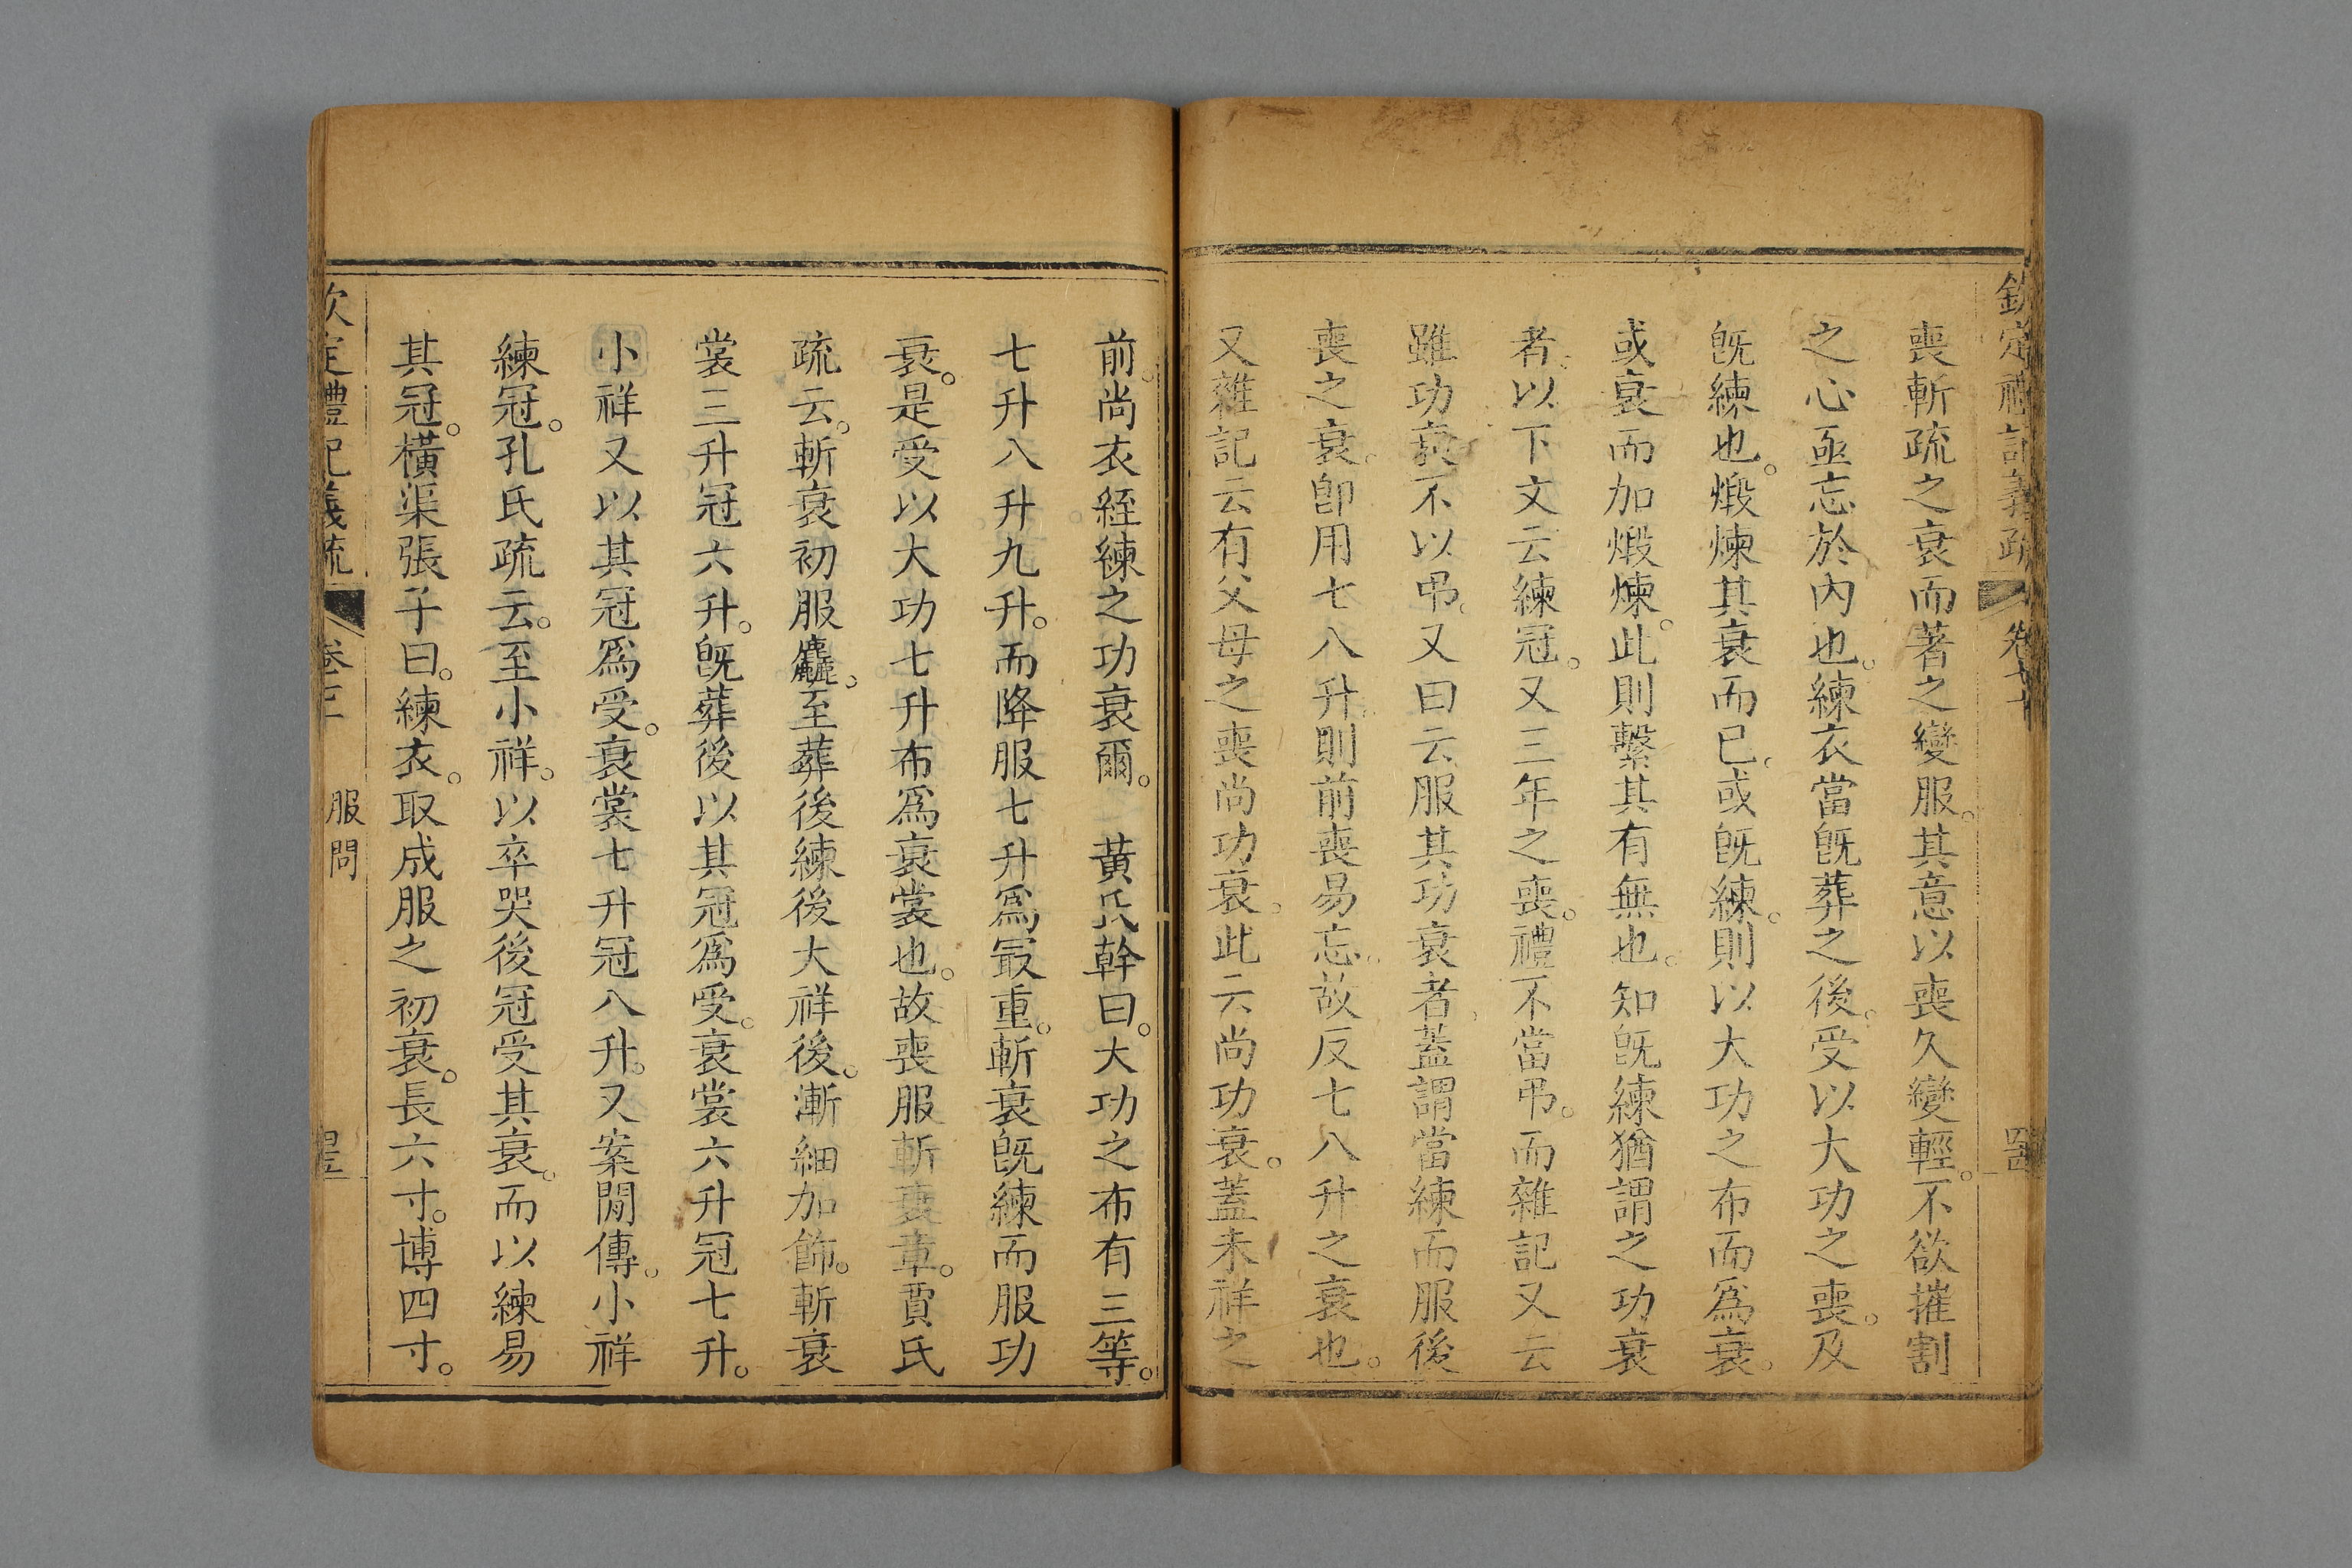 欽定禮記義疏 卷七十
喪斬疏之衰而著之變服。其意以喪久變輕。不欲摧割
之心亟忘於內也。練衣當旣葬之後。受以大功之喪。及
旣練也。煅煉其衰而已。或旣練。則以大功之布而爲衰。
或衰而加煅煉。此則繫其有無也。知旣練猶謂之功衰
者。以下文云練冠。又三年之喪。禮不當弔。而雜記又云
雖功衰不以弔。又曰云服其功衰者。蓋謂當練而服後
喪之衰。卽用七八升。則前喪易忘。故反七八升之衰也。
又雜記云有父母之喪尚功衰。此云尚功衰。蓋未祥之
前。尚衣絰練之功衰爾。 黃氏幹曰。大功之布有三等。
七升八升九升。而降服七升爲冣重。斬衰旣練而服功
衰。是受以大功七升布爲衰裳也。故喪服斬衰章。賈氏
疏云。斬衰初服麤。至葬後練後大祥後。漸細加飾。斬衰
裳三升冠六升。旣葬後以其冠爲受。衰裳六升冠七升。
小祥又以其冠爲受。衰裳七升冠八升。又案閒傳。小祥
練冠。孔氏疏云。至小祥。以卒哭後冠受其衰。而以練易
其冠。橫渠張子曰。練衣。取成服之初衰。長六寸。博四寸。
欽定禮記義疏 卷 服問